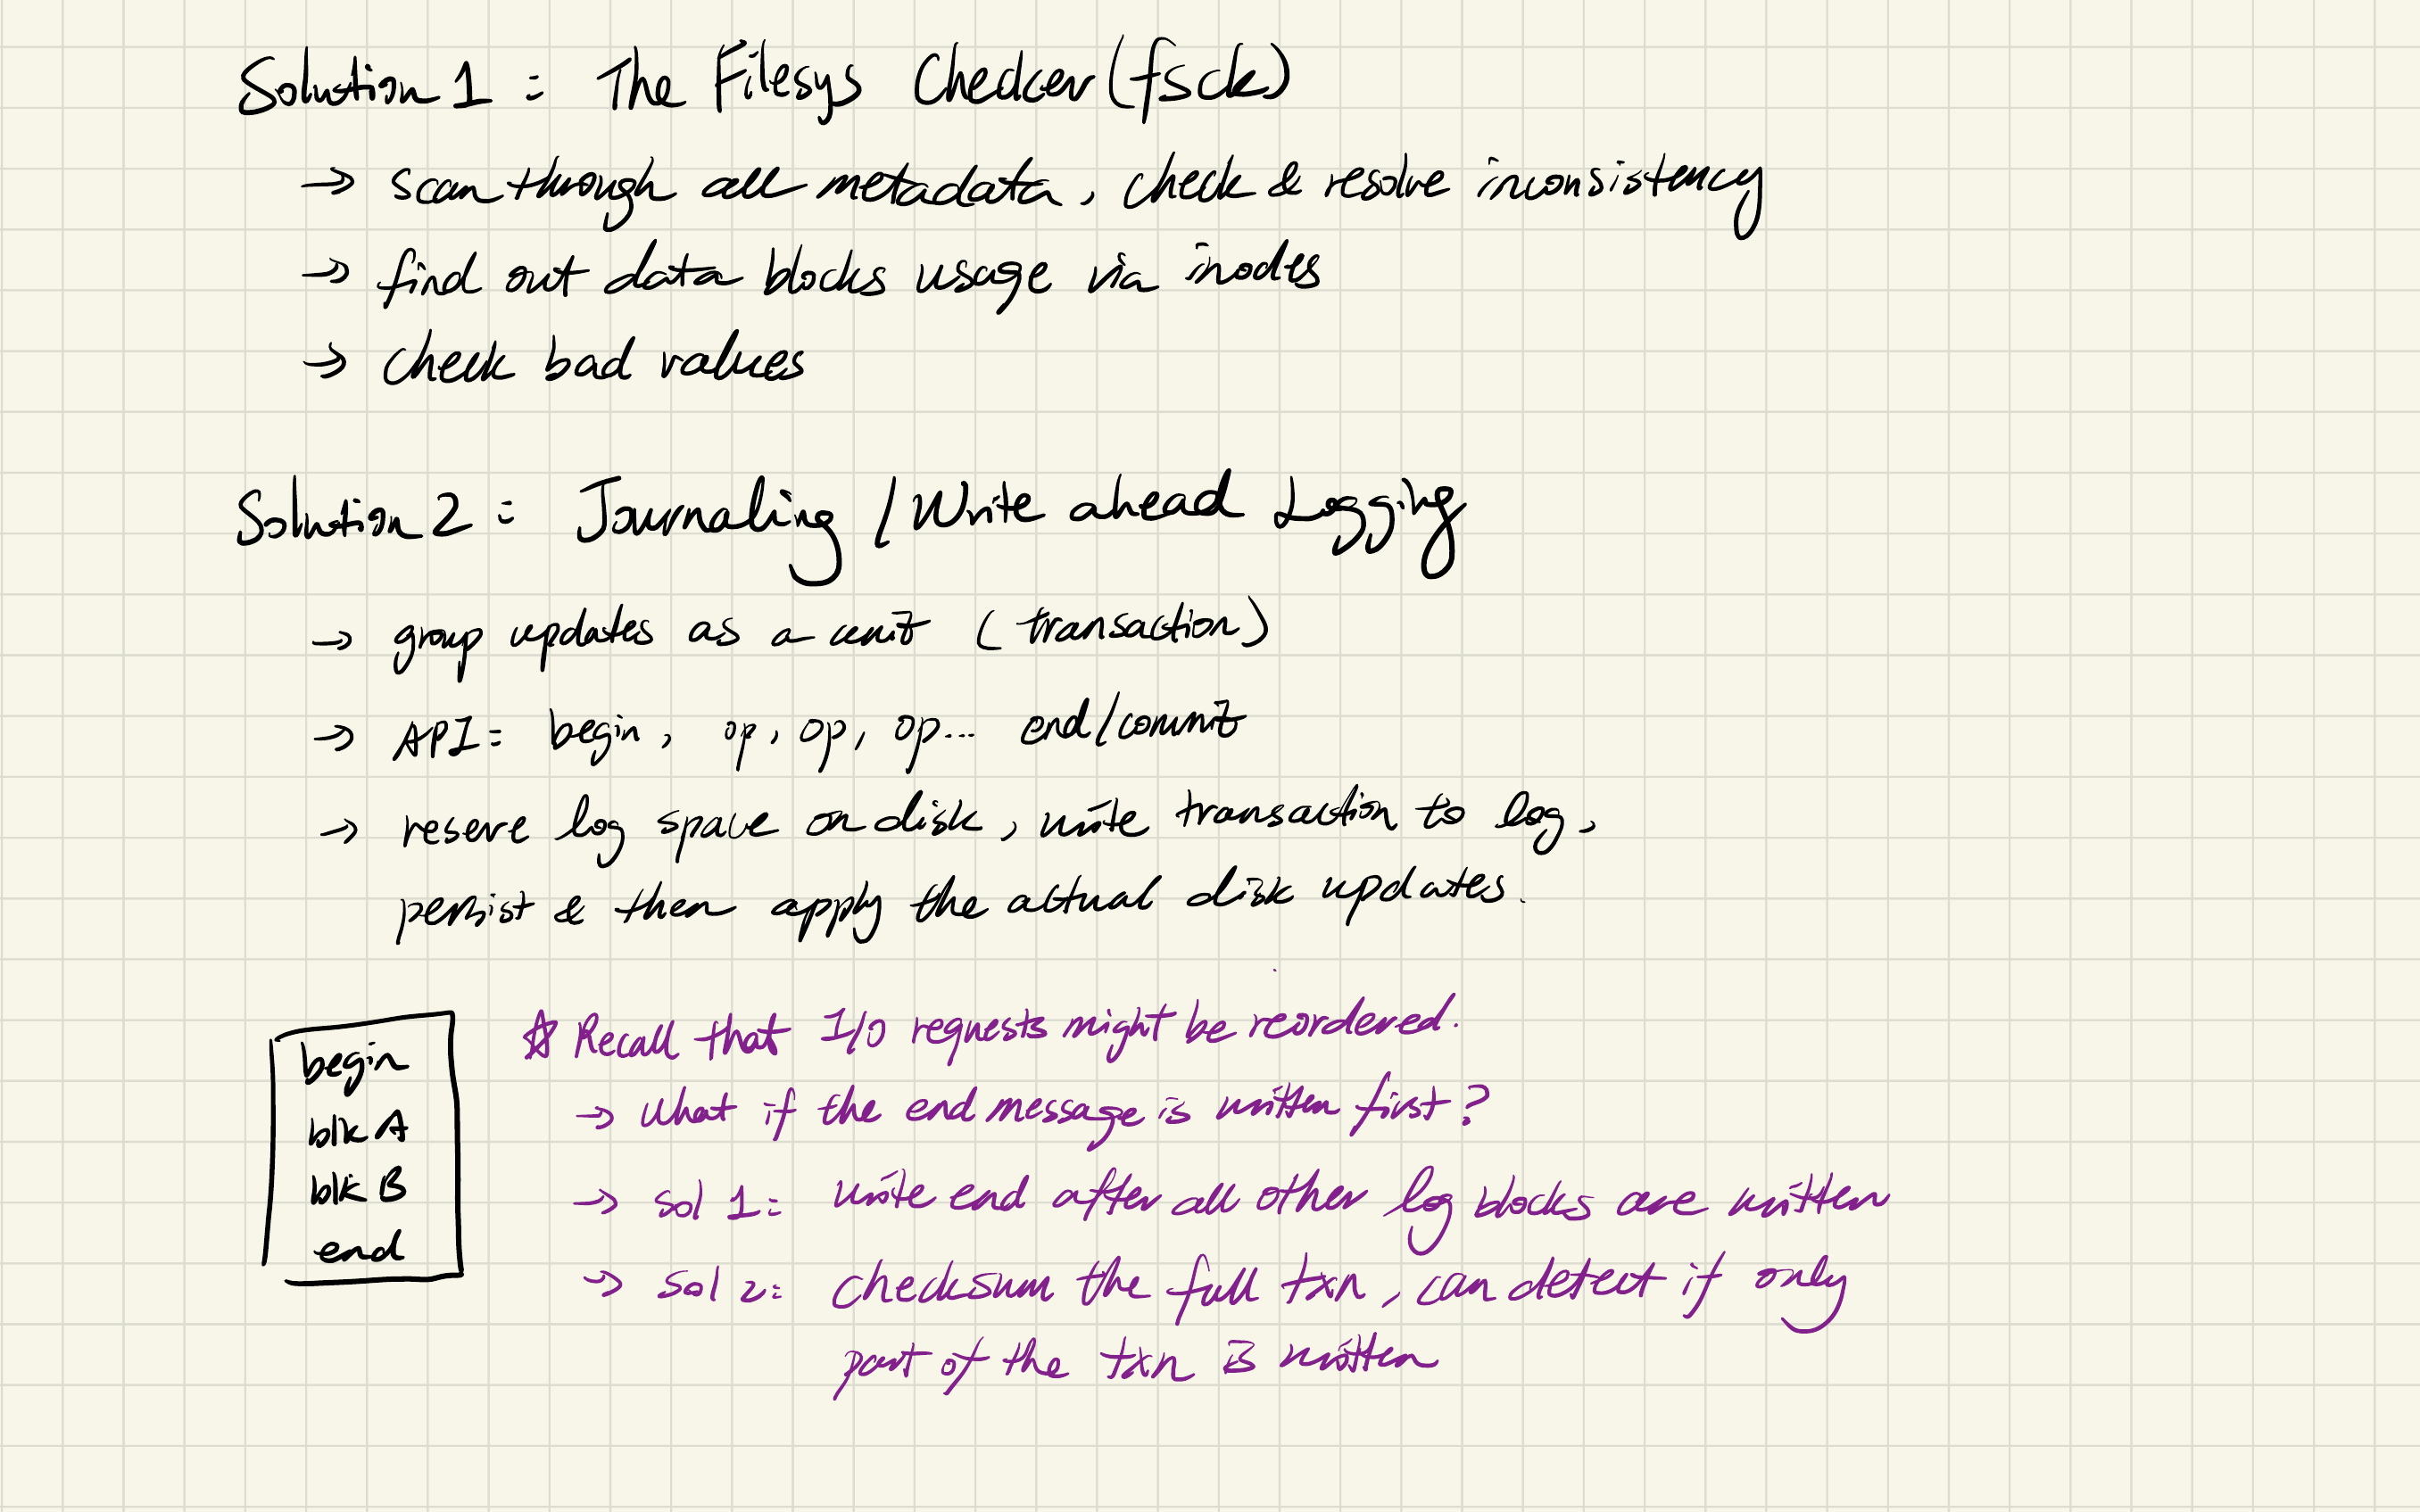 Solution 1 : The Filesys Checker (fsck)
→ scan through all metadata, check & resolve inconsistency
→ find out data blocks usage via inodes
→ check bad values
Solution 2 : Journaling / Write ahead Logging
→ group updates as a unit (transaction)
→ API: begin, op, op, op... end/commit
→ reserve log space on disk, write transaction to log,
persist & then apply the actual disk updates.
begin
blk A
blk B
end
☆ Recall that I/O requests might be reordered.
→ what if the end message is written first?
→ sol 1: write end after all other log blocks are written
→ sol 2: checksum the full txn, can detect if only
part of the txn is written